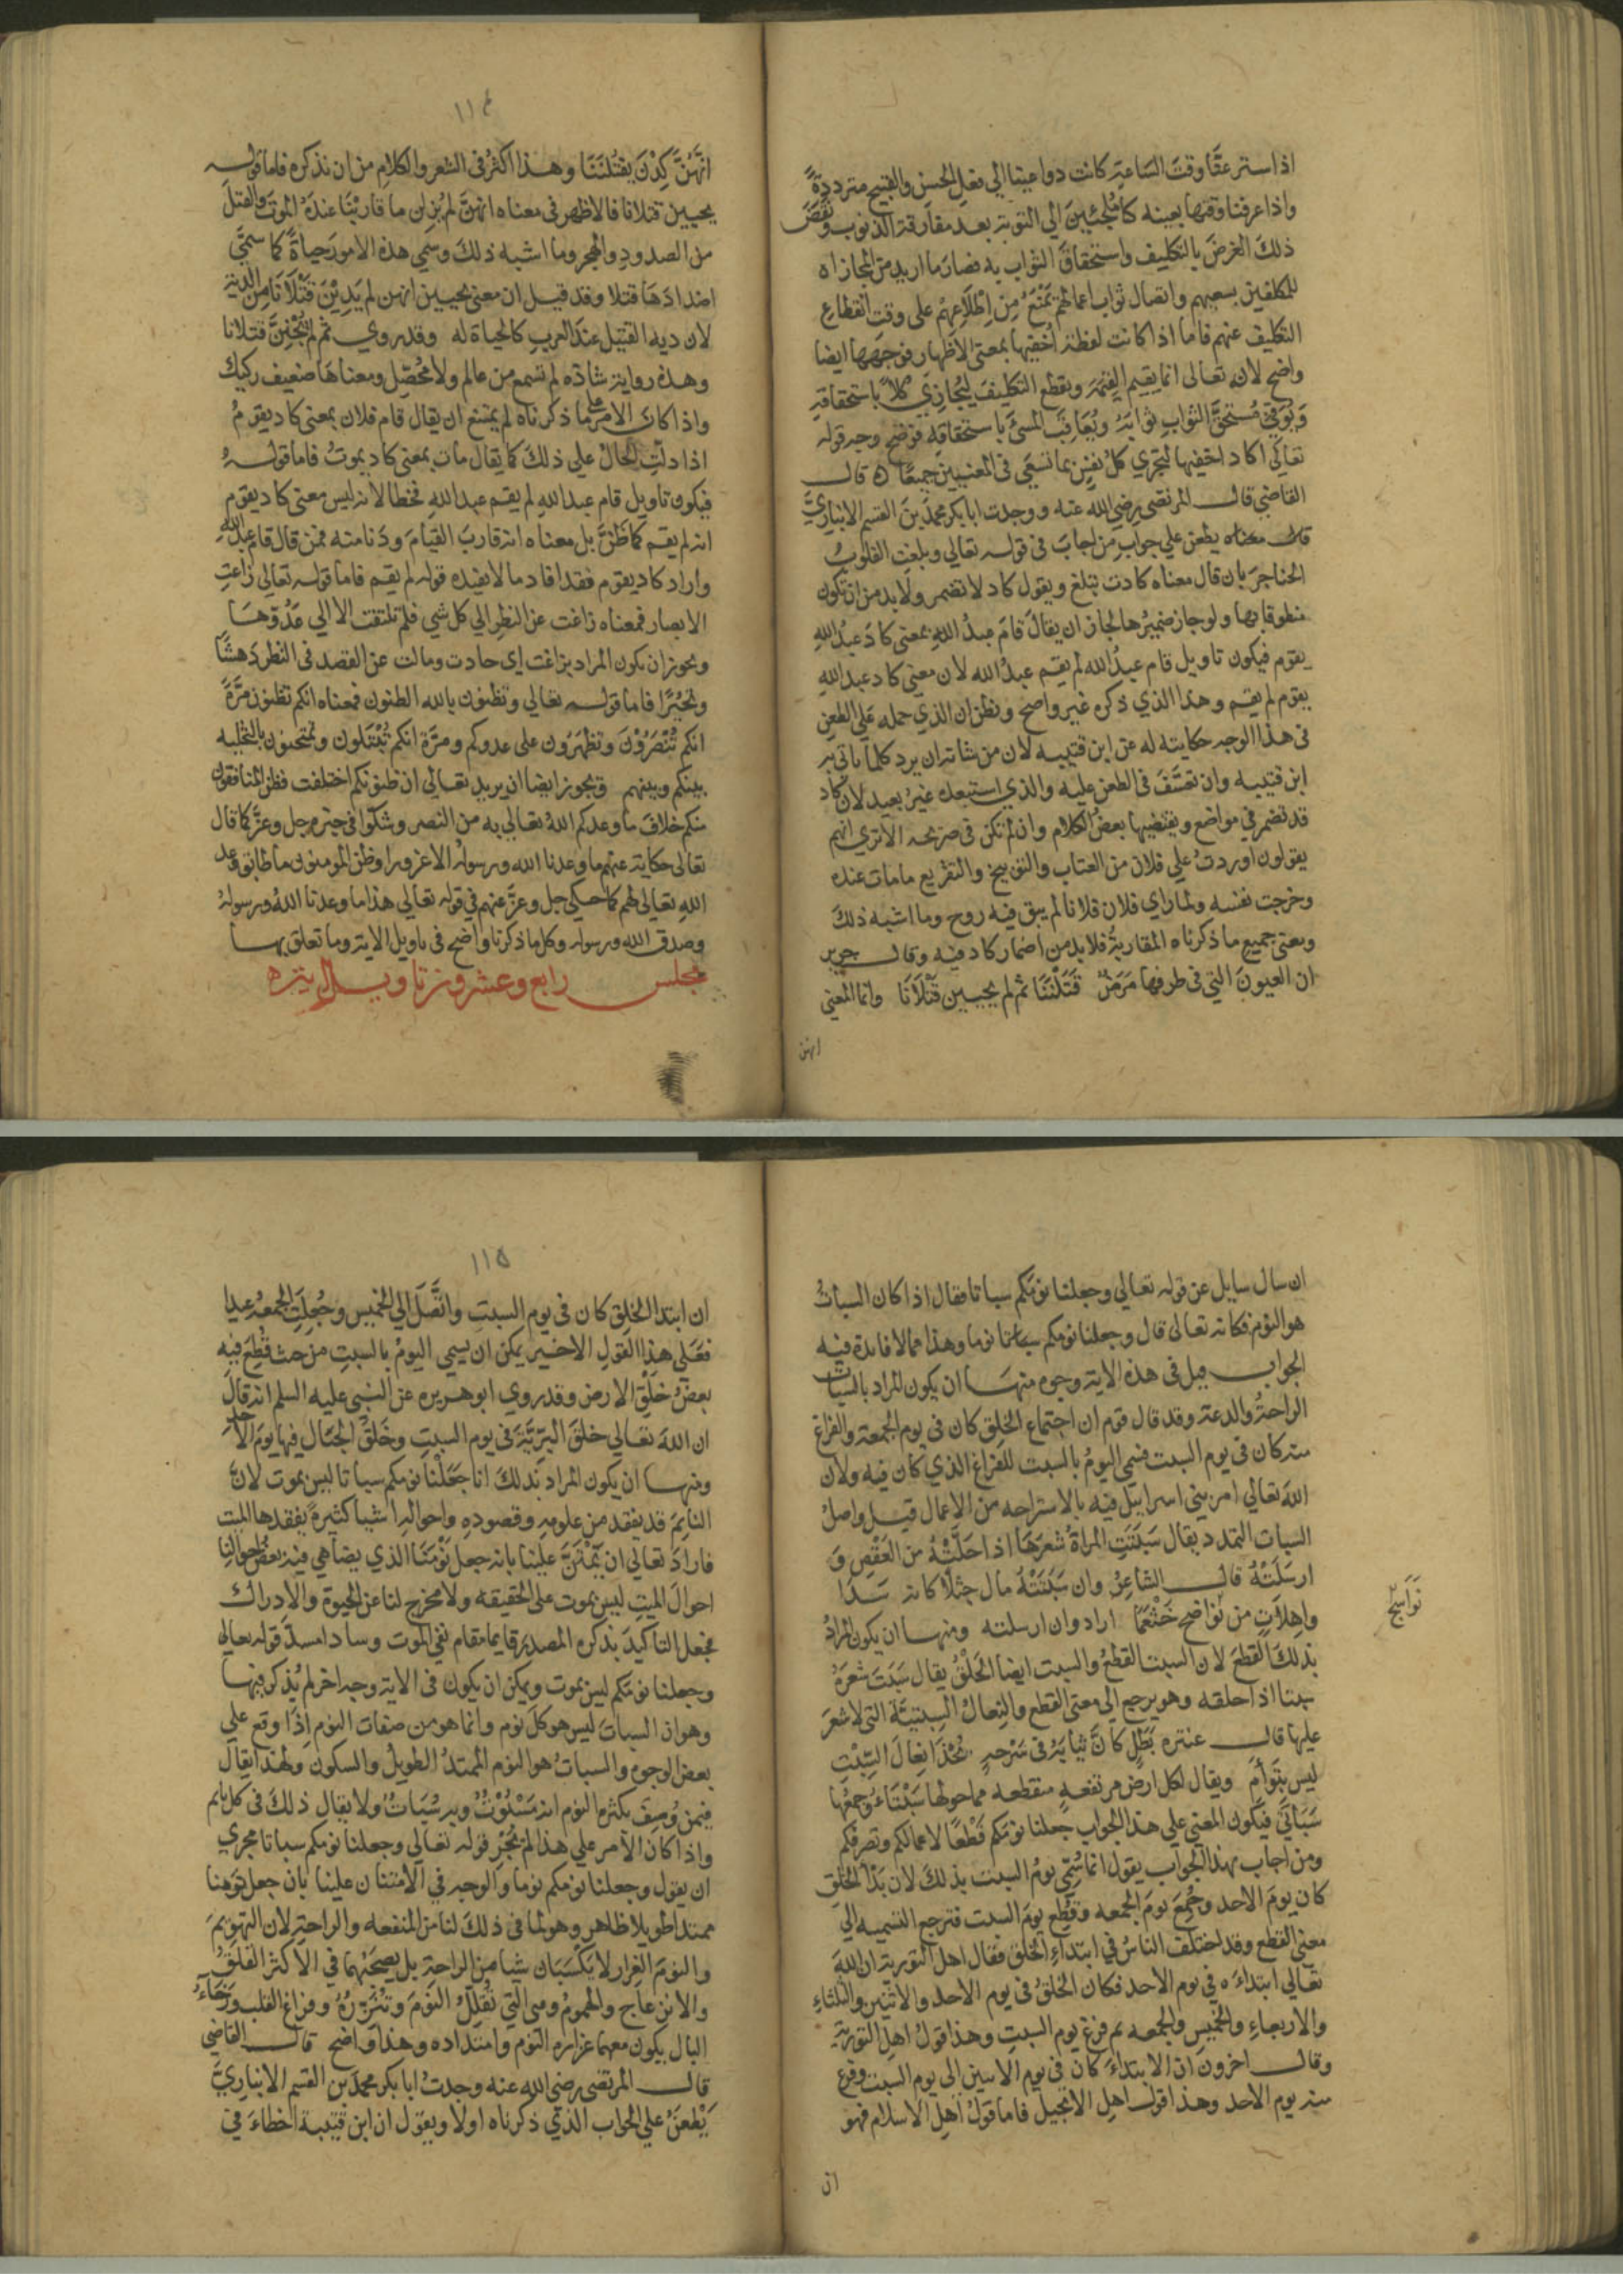 اذا ستر عنا وقت الساعة كانت دواعينا الي فعل الحسن والقبيح مترددةً
واذا عرفنا وقتها بعينه كنا ملجئين الي التوبة بعد مقارفة الذنوب ونقض
ذلك الغرض بالتكليف واستحقاق الثواب به فصار ما اريد من المجازاه
للمكلفين بسعيهم وايصال ثواب اعمالهم يمنع من اطلاعهم على وقت انقطاع
التكليف عنهم فاما اذا كانت لفظة اخفيها بمعنى الاظهار فوجهها ايضا
واضح لانه تعالى انما يقيم القيمة ويقطع التكليف ليجازي كلا باستحقاقه
ويوفي مستحق الثواب ثوابه ويعاقب المسئ باستحقاقه فوضح وجه قوله
تعالى اكاد اخفيها لتجزي كل نفس بما تسعى في المعنيين جميعا ه قال
القاضي قال المرتضى رضي الله عنه ووجدت ابا بكر محمد بن القسم الانباري
يطعن علي جواب من اجاب في قوله تعالي وبلغت القلوب
الحناجر بان قال معناه كادت تبلغ ويقول كاد لا تضمر ولا بد من ان تكون
منطوقا بها ولو جاز ضميرها لجاز ان يقال قام عبد الله بمعنى كاد عبد الله
يقوم فيكون تاويل قام عبد الله لم يقم عبد الله لان معنى كاد عبد الله
يقوم لم يقم وهذا الذي ذكره غير واضح ونظن ان الذي حمله على الطعن
في هذا الوجه حكايته له عن ابن قتيبه لان من شانه ان يرد كلما ياتي به
ابن قتيبه وان تعسف في الطعن عليه والذي استبعده غير بعيد لان كاد
قد تضمر في مواضع ويقتضيها بعض الكلام وان لم تكن في صريحه الا تري انهم
يقولون اوردت علي فلان من العتاب والتوبيخ والتقريع ما مات عنده
وخرجت نفسه ولما راي فلان فلانا لم يبق فيه روح وما اشبه ذلك
ومعنى جميع ما ذكرناه المقاربة فلا بد من اضمار كاد فيه وقال جرير
ان العيون التي في طرفها مرض قتلننا ثم لم يحيين قتلانا وانما المعني
انهن
١١٤
انهن كدن يقتلننا وهذا اكثر في الشعر والكلام من ان نذكره فاما قوله
يحيين قتلانا فالاظهر في معناه انهن لم يزلن ما قاربنا عنده الموت والقتل
من الصدود والهجر وما اشبه ذلك وسمي هذه الامور حياة كما سمى
اضدادها قتلا وقد قيل ان معنى يحيين انهن لم يدين قتلانا من الدية
لان دية القتيل عند العرب كالحياة له وقد روي ثم لم يجنن قتلانا
وهذه رواية شاذه لم تسمع من عالم ولا محصل ومعناها ضعيف ركيك
واذا كان الامر على ما ذكرناه لم يمتنع ان يقال قام فلان بمعنى كاد يقوم
اذا دلت الحال علي ذلك كما يقال مات بمعنى كاد يموت فاما قوله
فيكون تاويل قام عبد الله لم يقم عبد الله فخطا لانه ليس معنى كاد يقوم
انه لم يقم كما ظن بل معناه انه قارب القيام ودنا منه فمن قال قام عبد الله
واراد كاد يقوم فقد افاد ما لا يفيده قوله لم يقم فاما قوله تعالى زاغت
الابصار فمعناه زاغت عن النظر الي كل شي فلم تلتفت الا الي عدوها
ويجوز ان يكون المراد بزاغت اي حادت ومالت عن القصد في النظر دهشا
وتحيرا فاما قوله تعالى وتظنون بالله الظنون فمعناه انكم تظنون مرة
انكم تنصرون وتظهرون على عدوكم ومرة انكم تبتلون وتمتحنون بالتخليه
بينكم وبينهم ويجوز ايضا ان يريد تعالى ان ظنونكم اختلفت فظن المنافقون
منكم خلاف ما وعدكم الله تعالى به من النصر وشكوا في خبره جل وعز كما قال
تعالى حكاية عنهم ما وعدنا الله ورسوله الا غرورا وظن المومنون ما طابق وعد
الله تعالى لهم كما حكي جل وعز عنهم في قوله تعالى هذا ما وعدنا الله ورسوله
وصدق الله ورسوله وكل ما ذكرنا واضح في تاويل الاية وما تعلق بها
مجلس رابع وعشرون تاويل اية
ان سال سايل عن قوله تعالى وجعلنا نومكم سباتا فقال اذا كان السبات
هو النوم فكانه تعالى قال وجعلنا نومكم نوما وهذا مما لا فايدة فيه
الجواب قيل في هذه الاية وجوه منها ان يكون المراد بالسبات
الراحة والدعة وقد قال قوم ان اجتماع الخلق كان في يوم الجمعة والفراغ
منه كان في يوم السبت فسمي اليوم بالسبت للفراغ الذي كان فيه ولان
الله تعالى امر بني اسراييل فيه بالاستراحه من الاعمال قيل واصل
السبات التمدد يقال سبتت المراة شعرها اذا حلته من العقص و
ارسلته قال الشاعر وان سبتته مال جثلا كانه سدا
واهلات من نواضح خثعما اراد وان ارسلته ومنها ان يكون المراد
نواسج
بذلك القطع لان السبت القطع والسبت ايضا الحلق يقال سبت شعره
سبتا اذا حلقه وهو يرجع الي معنى القطع والنعال السبتية التي لا شعر
عليها قال عنتره بطل كان ثيابه في سرحة يحذا نعال السبت
ليس بتوام ويقال لكل ارض مرتفعه منقطعه مما حولها سبتاء وجمعها
سباتي فيكون المعنى علي هذا الجواب جعلنا نومكم قطعا لاعمالكم وتصرفكم
ومن اجاب بهذا الجواب يقول انما سمي يوم السبت بذلك لان بدا الخلق
كان يوم الاحد وجمع يوم الجمعه وقطع يوم السبت فترجع التسميه الي
معنى القطع وقد اختلف الناس في ابتداء الخلق فقال اهل التورية ان الله
تعالى ابتداءه في يوم الاحد فكان الخلق في يوم الاحد والاثنين والثلثاء
والاربعاء والخميس والجمعه ثم فرغ يوم السبت وهذا قول اهل التورية
وقال اخرون ان الابتداء كان في يوم الاثنين الى يوم السبت وفرغ
منه يوم الاحد وهذا قول اهل الانجيل فاما قول اهل الاسلام فهو
ان
١١٥
ان ابتدا الخلق كان في يوم السبت واتصل الي الخميس وجعلت الجمعه عيدا
فعلى هذا القول الاخير يمكن ان يسمي اليوم بالسبت من حيث قطع فيه
بعض خلق الارض وقد روي ابو هريره عن النبي عليه السلم انه قال
ان الله تعالى خلق البرية في يوم السبت وخلق الجبال فيها يوم الاحد
ومنها ان يكون المراد بذلك انا جعلنا نومكم سباتا ليس بموت لان
النايم قد يفقد من علومه وقصوده واحواله اشيا كثيرة يفقدها الميت
فاراد تعالى ان يمتن علينا بانه جعل نومنا الذي يضاهي فيه بعض احوالنا
احوال الميت ليس بموت على الحقيقه ولا مخرج لنا عن الحيوة والادراك
فجعل التاكيد بذكره المصدر قايما مقام نفي الموت وسادا مسد قوله تعالى
وجعلنا نومكم ليس بموت ويمكن ان يكون في الاية وجه اخر لم يذكر فيها
وهو ان السبات ليس هو كل نوم وانما هو من صفات النوم اذا وقع علي
بعض الوجوه والسبات هو النوم الممتد الطويل والسكون ولهذا يقال
فيمن وصف بكثرة النوم انه مسبوت وبه سبات ولا يقال ذلك في كل نايم
واذا كان الامر علي هذا لم يجر قوله تعالى وجعلنا نومكم سباتا مجري
ان يقول وجعلنا نومكم نوما والوجه في الامتنان علينا بان جعل نومنا
ممتدا طويلا ظاهر وهو لما في ذلك لنا من المنفعه والراحة لان التهويم
والنوم الغرار لا يكسبان شيا من الراحة بل يصحبهما في الاكثر القلق
والانزعاج والهموم وهي التي تقلل النوم وتنزره وفراغ القلب ورخاء
البال يكون معهما غزارة النوم وامتداده وهذا واضح قال القاضي
قال المرتضى رضي الله عنه وجدت ابا بكر محمد بن القسم الانباري
يطعن علي الجواب الذي ذكرناه اولا ويقول ان ابن قتيبة اخطاء في